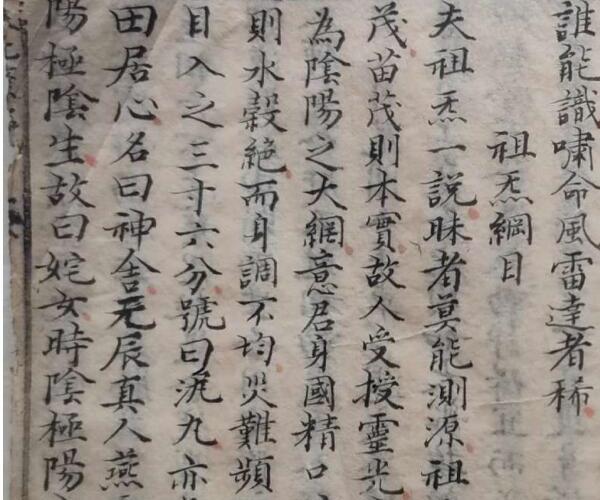 誰能識嘯命風雷達者稀
祖炁綱目
夫祖炁一説昧者莫能測源祖
茂苗茂則本實故人受授靈光
為陰陽之大綱意君身國精口
則水穀絶而身調不均災難頻
目入之三寸六分號曰泥九亦
田居心名曰神舍元辰真人燕
陽極陰生故曰姹女時陰極陽